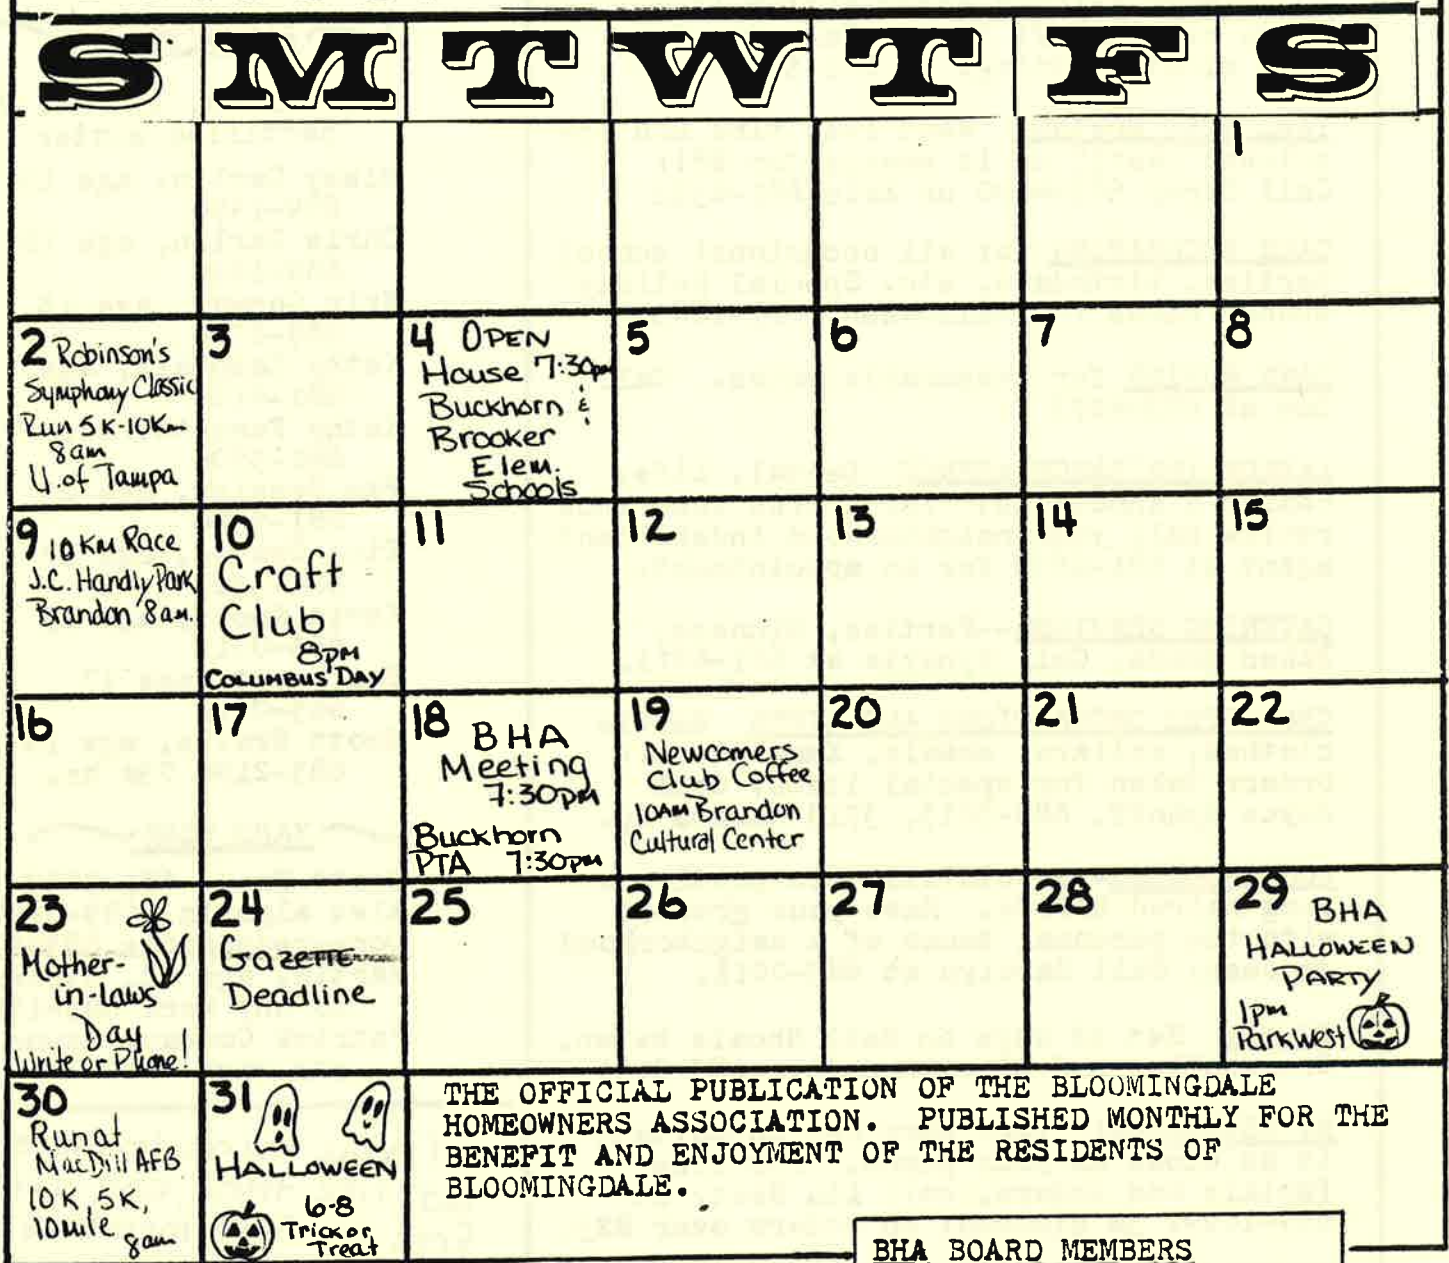 S M T W T F S
1
2 Robinson's
Symphony Classic
Run 5K-10Km
8am
U. of Tampa
3
4 OPEN
House 7:30pm
Buckhorn &
Brooker
Elem.
Schools
5
6
7
8
9 10 KM Race
J.C. Handly Park
Brandon 8am.
10
Craft
Club
8PM
COLUMBUS DAY
11
12
13
14
15
16
17
18 BHA
Meeting
7:30pm
Buckhorn
PTA 7:30pm
19
Newcomers
Club Coffee
10AM Brandon
Cultural Center
20
21
22
23
Mother-
in-laws
Day
Write or Phone!
24
Gazette
Deadline
25
26
27
28
29 BHA
HALLOWEEN
PARTY
1pm
Parkwest
30
Run at
MacDill AFB
10K, 5K,
10 mile 8am
31
HALLOWEEN
6-8
Trick or
Treat
THE OFFICIAL PUBLICATION OF THE BLOOMINGDALE
HOMEOWNERS ASSOCIATION. PUBLISHED MONTHLY FOR THE
BENEFIT AND ENJOYMENT OF THE RESIDENTS OF
BLOOMINGDALE.
BHA BOARD MEMBERS